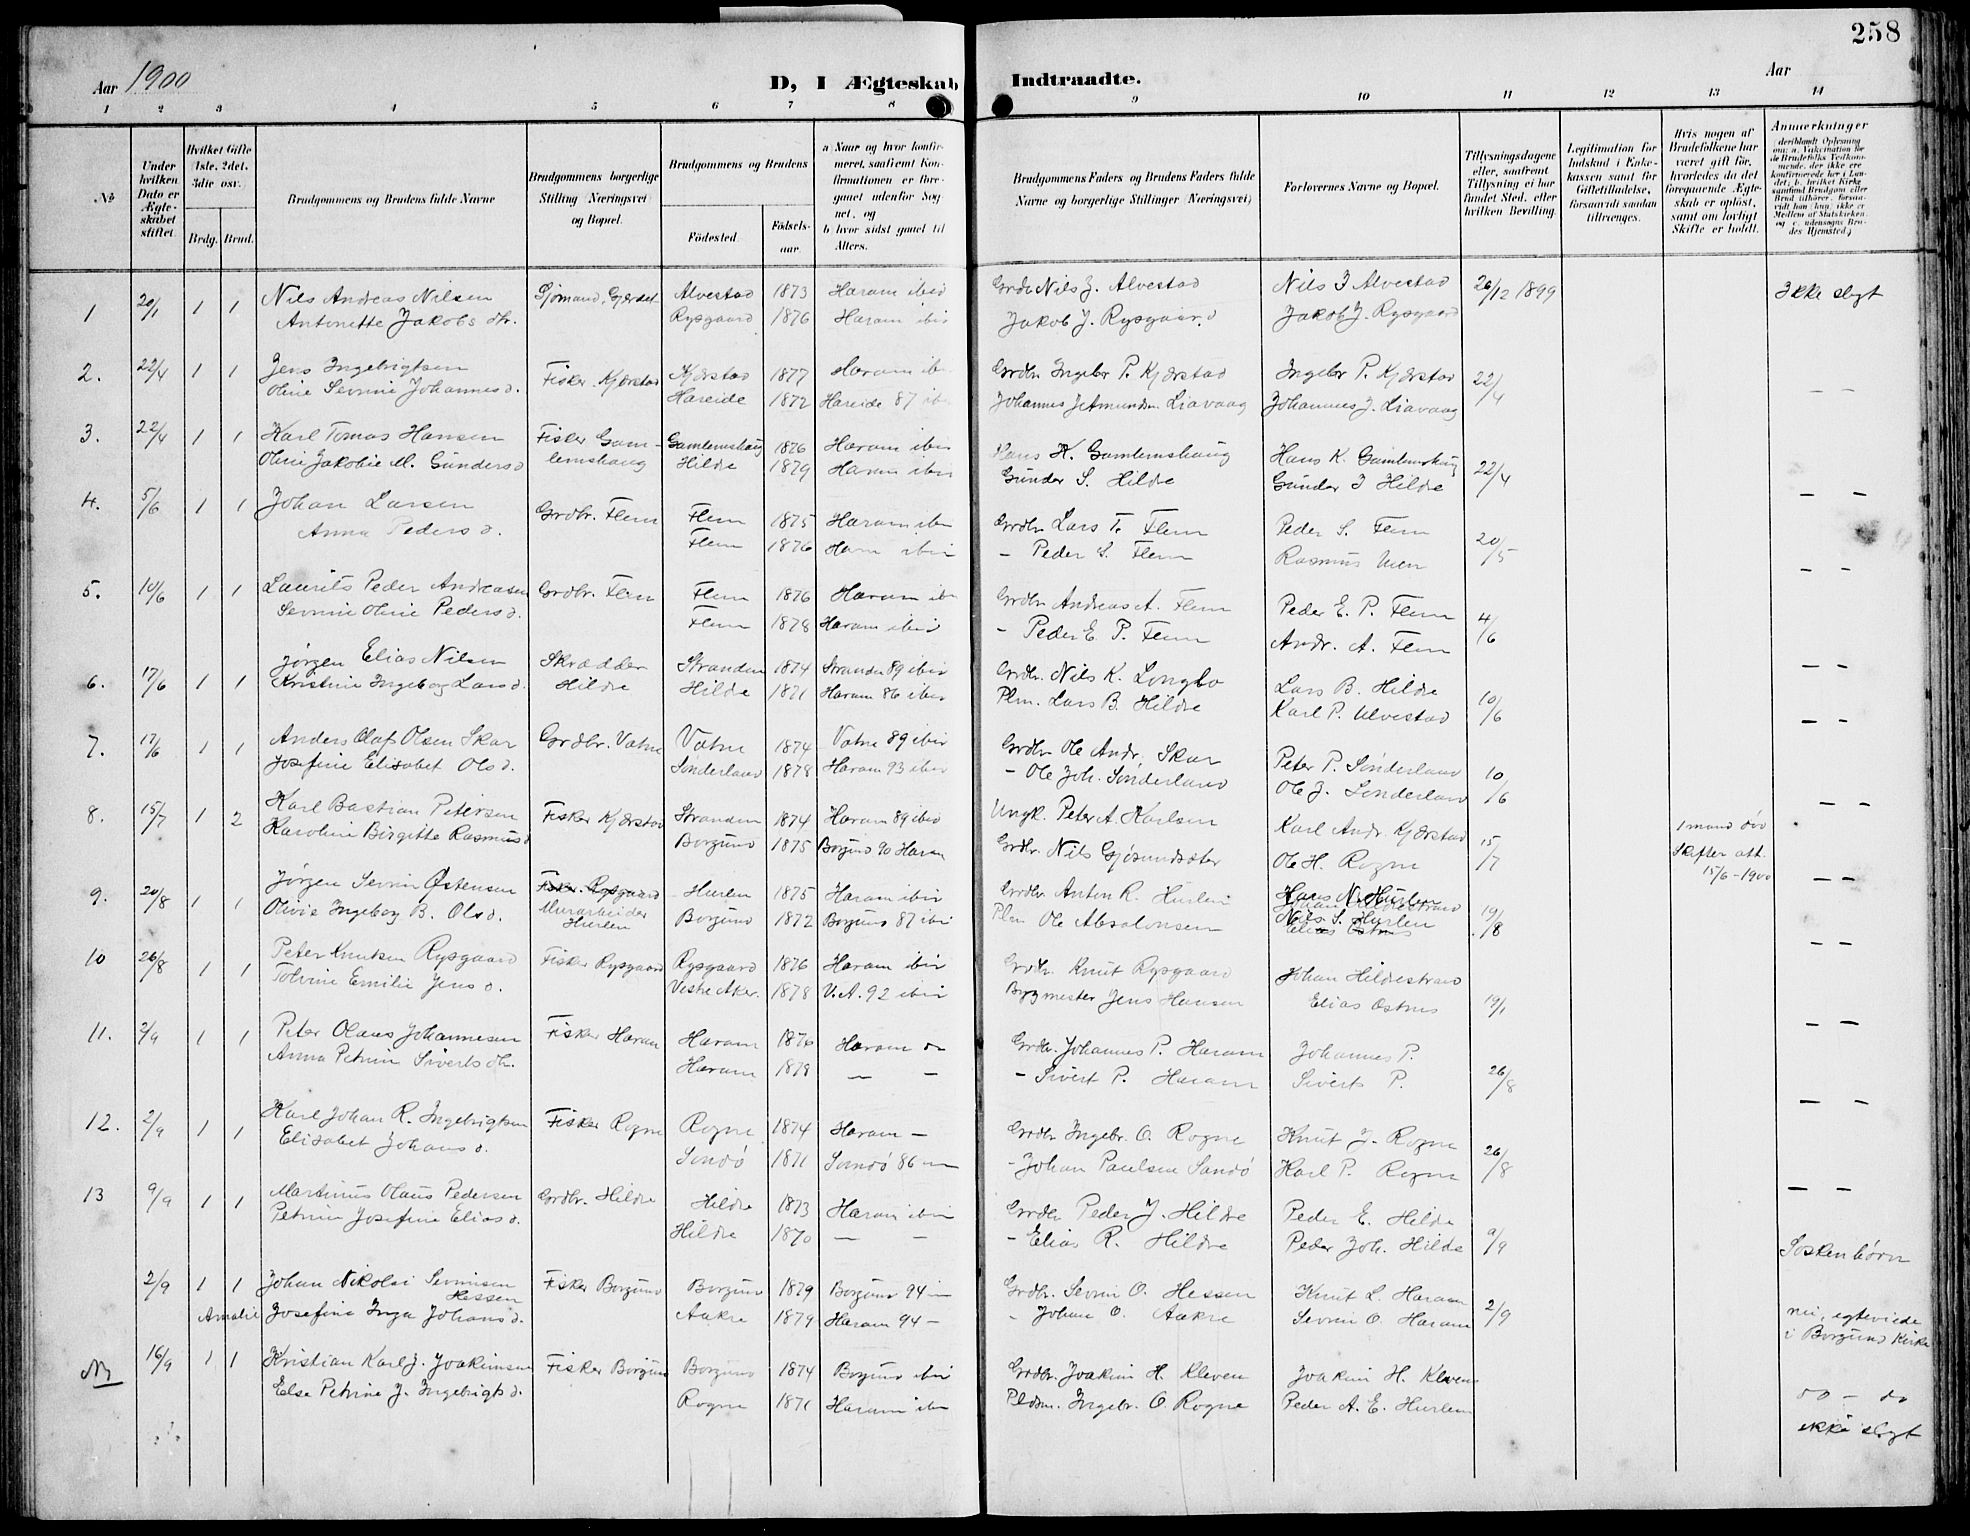 258
Aar 1900
D, I Ægteskab Indtraadte.
Aar
1 2 3 4 5 6 7 8 9 10 11 12 13 14
№
Under hvilken Dato er Ægteskabet stiftet.
Hvilket Gifte (1ste, 2det, 3die osv.
Brdg. Brud.
Brudgommens og Brudens fulde Navne
Brudgommens borgerlige Stilling (Næringsvei) og Bopæl.
Brudgommens og Brudens
Fødested. Fødselsaar.
a) Naar og hvor konfirmeret, saafremt Konfirmationen er foregaaet udenfor Sognet, og
b) hvor sidst gaaet til Alters.
Brudgommens Faders og Brudens Faders fulde Navne og borgerlige Stillinger (Næringsvei)
Forlovernes Navne og Bopæl.
Tillysningsdagene eller, saafremt Tillysning ei har fundet Sted, efter hvilken Bevilling.
Legitimation for Indskud i Enkekassen samt for Giftetilladelse, forsaavidt saadan tiltrænges.
Hvis nogen af Brudefolkene har været gift før, hvorledes da det foregaaende Ægteskab er opløst, samt om lovligt Skifte er holdt.
Anmærkninger
1 20/1 1 1 Nils Andreas Nilsen Sjømand, Gjerdet Alvestad 1873 Haram ibid Grdbr. Nils J. Alvestad Nils J Alvestad 26/12 1899 Ikke slegt
Antonette Jakobs dtr. Rysgaard 1876 Haram ibid Jakob J. Rysgaard Jakob J. Rysgaard
2. 22/4 1 1 Jens Ingebrigtsen Fisker Kjerstad Kjerstad 1877 Haram ibid Grdbr. Ingebr P. Kjerstad Ingebr P. Kjerstad 22/4 — —
Oline Sevrine Johannesd. Hareide 1872 Hareide 87 ibid Johannes Jetmundsen Liavaag Johannes J. Liavaag
3. 22/4 1 1 Karl Tomas Hansen Fisker Gamlemshaug Gamlemshaug 1876 Haram ibid Hans K. Gamlemshaug Hans K. Gamlemshaug 22/4 — —
Oline Jakobie M. Gundersd Hilde 1879 Haram ibid Gunder S. Hilde Gunder J Hilde
4. 5/6 1 1 Johan Larsen Grdbr. Flem Flem 1875 Haram ibid Grdbr Lars T. Flem Peder S. Flem 20/5 — —
Anna Peders d. Flem 1876 Haram ibid — Peder S. Flem Rasmus Uren
5. 10/6 1 1 Laurits Peder Andreasen Grdbr. Flem Flem 1876 Haram ib Grdbr Andreas A. Flem Peder E. P. Flem 4/6 — —
Sevrine Oline Peders d. Flem 1878 Haram ibid — Peder E. P. Flem Andr. A. Flem
6. 17/6 1 1 Jørgen Elias Nilsen Skrædder Hilde Stranden 1874 Stranden 89 ibid Grdbr. Nils K. Longbo Lars B. Hilde 10/6 — —
Kristine Ingeborg Lars d. Hilde 1871 Haram 86 ibid Plm. Lars B. Hildre Karl P. Ulvestad
7. 17/6 1 1 Anders Olaf Olsen Skar Grdbr. Vatne Vatne 1874 Vatne 89 ibid Grdbr Ole Andr. Skar Peter P. Sønderland 10/6 — —
Josefine Elisabet Ols d. Sønderland 1878 Haram 93 ibid — Ole Joh. Sønderland Ole J. Sønderland
8. 15/7 1 2 Karl Bastian Petersen Fisker Kjerstad Stranden 1874 Haram 89 ibid Ungk. Peter A. Karlsen Karl Andr. Kjerstad 15/7 1 mand død Skifteratt. 15/6-1900 — —
Karoline Birgitte Rasmus d Borgund 1875 Borgund 90 Haram Grdbr. Nils Gjøsundsæter Ole H. Rogne
9. 20/8 1 1 Jørgen Sevrin Østensen Fisker Rysgaard Murarbeider Hurlen Hurlen 1875 Haram ibid Grdbr Anton R. Hurlen Hans N. Hurlen 19/8 — —
Olivie Ingeborg B. Ols d. Borgund 1872 Borgund 87 ibid Plm Ole Absalonsen Nils S. Hurlen Elias Østnes
10 26/8 1 1 Peter Knutsen Rysgaard Fisker Rysgaard Rysgaard 1876 Haram ibid Grdbr. Knut Rysgaard Johan Hildestrand 19/1 — —
Tolvine Emilie Jens d. Vestre Aker. 1878 V. A. 92 ibid Bygmester Jens Hansen Elias Østnes
11. 2/9 1 1 Peter Olaus Johannesen Fisker Haram Haram 1876 Haram do Grdbr. Johannes P. Haram Johannes P. 26/8 — —
Anna Petrine Siverts dtr. Haram 1878 — — — Sivert P. Haram Siverts P.
12. 2/9 1 1 Karl Johan R. Ingebrigtsen Fisker Rogne Rogne 1874 Haram — Grdbr Ingebr. O. Rogne Knut J. Rogne 26/8 — —
Elisabet Johans d. Sandø 1871 Sandø 86 — — Johan Paulsen Sandø Karl P. Rogne
13 9/9 1 1 Martinus Olaus Pedersen Grdbr. Hildre Hildre 1873 Haram ibid Grdbr Peder J. Hildre Peder E. Hilde 9/9 Søskenbørn
Petrine Josefine Elias d. Hildre 1870 — — — Elias R. Hildre Peder Joh. Hilde
2/9 1 1 Johan Nikolai Sevrinsen Hessen Fisker Borgund Borgund 1879 Borgund 94 — Grdbr. Sevrin O. Hessen Knut L. Haram 2/9 nei, egteviede i Borgund Kirke
Amalie Josefine Inga Johans d. Aakre 1879 Haram 94 — — Johan O. Aakre Sevrin O. Haram
16/9 1 1 Kristian Karl J. Joakimsen Fisker Borgund Borgund 1874 Borgund ibid Grdbr. Joakim H. Kleven Joakim H. Kleven do — do
Else Petrine J. Ingebrigts d. Rogne 1871 Haram ibid Pldsm. Ingebr. O. Rogne Peder A. E. Hurlen ikke slegt